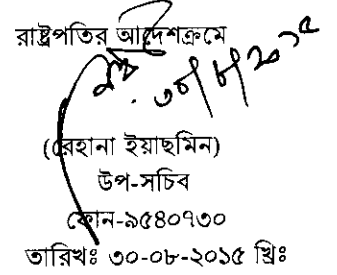 রাষ্ট্রপতির আদেশক্রমে
৩০/৮/২০১৫
(রেহানা ইয়াছমিন)
উপ-সচিব
ফোন-৯৫৪০৭৩০
তারিখঃ ৩০-০৮-২০১৫ খ্রিঃ